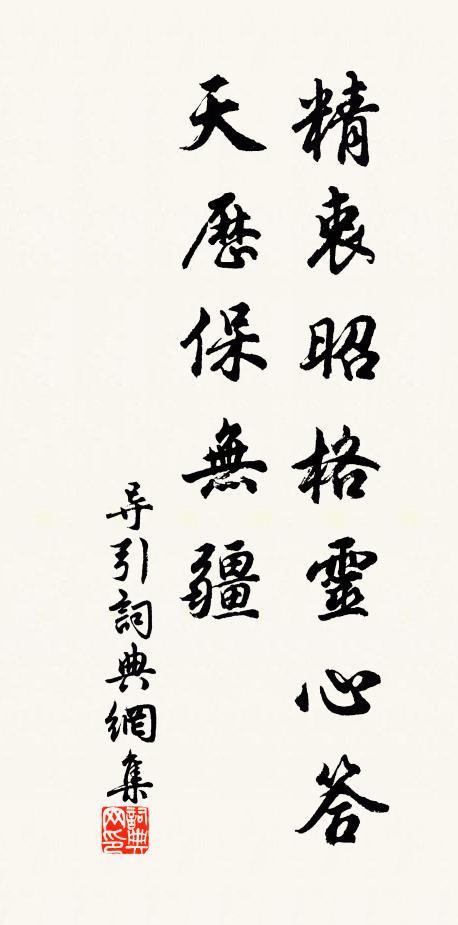 精衷昭格靈心答
天歷保無疆
导引詞典網集
詞典网印